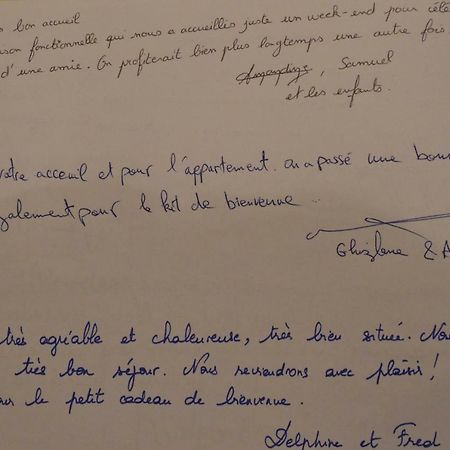 bon accueil
fonctionnelle qui nous a accueillis juste un week-end pour célé
d'une amie. On profiterait bien plus longtemps une autre fois
, Samuel
et les enfants.
votre acceuil et pour l'appartement. on a passé une bonn
également pour le kit de bienvenue ..
Ghizlene & A
très agréable et chaleureuse, très bien située. Nou
très bon séjour. Nous reviendrons avec plaisir !
our le petit cadeau de bienvenue.
Delphine et Fred